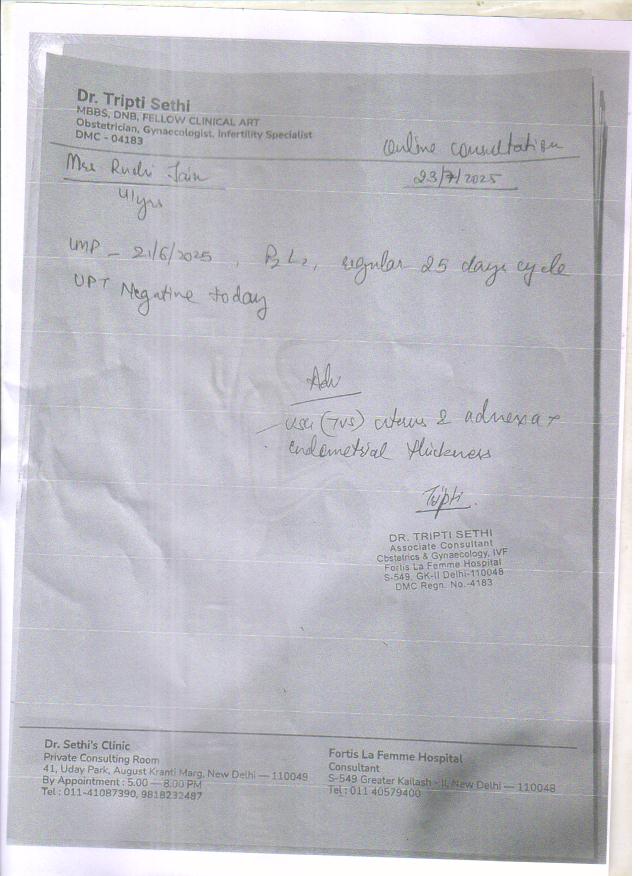 Dr. Tripti Sethi
MBBS, DNB, FELLOW CLINICAL ART
Obstetrician, Gynaecologist, Infertility Specialist
DMC - 04183
Online consultation
23/7/2025
Mrs Ruchi Jain
41yrs
LMP - 21/6/2025, P2 L2, regular 25 days cycle
UPT Negative today
Adv
USG (TVS) uterus & adnexa +
endometrial thickness
Tripti
DR. TRIPTI SETHI
Associate Consultant
Obstetrics & Gynaecology, IVF
Fortis La Femme Hospital
S-549, GK-II Delhi-110048
DMC Regn. No.-4183
Dr. Sethi's Clinic
Private Consulting Room
41, Uday Park, August Kranti Marg, New Delhi — 110049
By Appointment : 5.00 — 8.00 PM
Tel : 011-41087390, 9818232487
Fortis La Femme Hospital
Consultant
S-549 Greater Kailash - II, New Delhi — 110048
Tel : 011 40579400